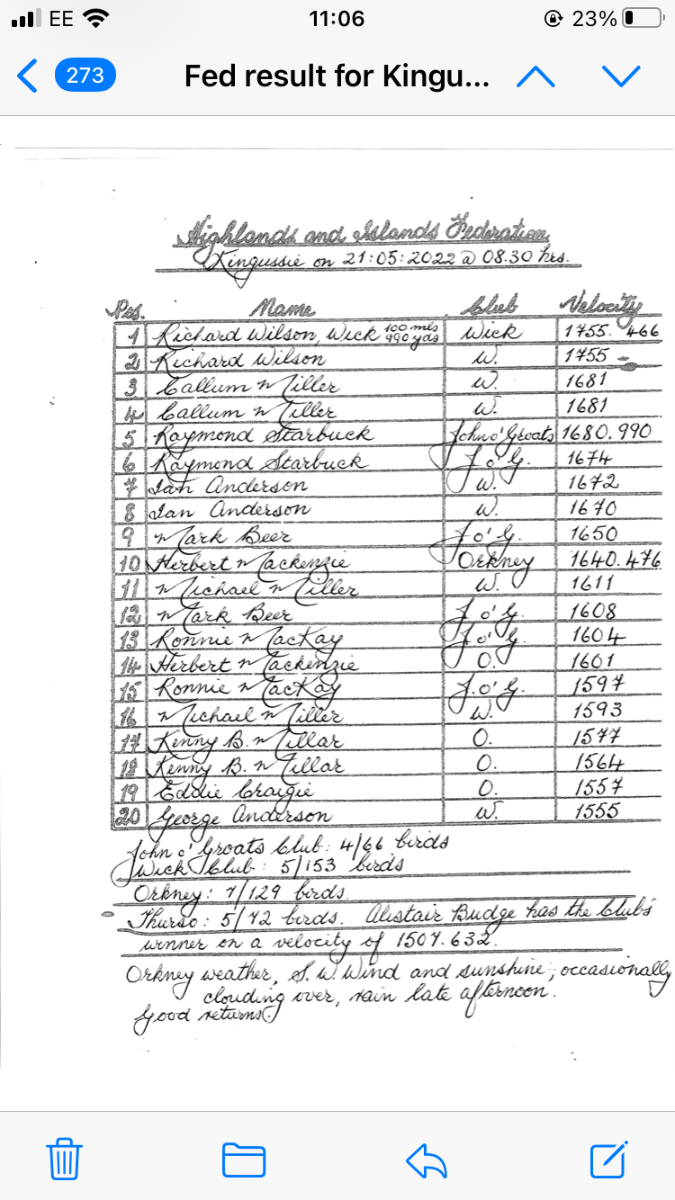 EE 11:06 23%
273 Fed result for Kingu...
Highlands and Islands Federation
Kingussie on 21:05:2022 @ 08.30 hrs.
Pos. Name Club Velocity
1 Richard Wilson, Wick 100 mls 990 yds Wick 1755.466
2 Richard Wilson W. 1755
3 Callum Miller W. 1681
4 Callum Miller W. 1681
5 Raymond Starbuck John o' Groats 1680.990
6 Raymond Starbuck J.o'G. 1674
7 Ian Anderson W. 1672
8 Ian Anderson W. 1670
9 Mark Beer J.o'G. 1650
10 Herbert Mackenzie Orkney 1640.476
11 Michael Miller W. 1611
12 Mark Beer J.o'G. 1608
13 Ronnie MacKay J.o'G. 1604
14 Herbert Mackenzie O. 1601
15 Ronnie MacKay J.o'G. 1597
16 Michael Miller W. 1593
17 Kenny B. Millar O. 1577
18 Kenny B. Millar O. 1564
19 Eddie Craigie O. 1557
20 George Anderson W. 1555
John o' Groats Club: 4/66 birds
Wick Club: 5/153 birds
Orkney: 7/129 birds
Thurso: 5/72 birds. Alistair Budge has the Clubs
winner on a velocity of 1507.632.
Orkney weather, S.W. Wind and sunshine; occasionally
clouding over, rain late afternoon.
Good returns.